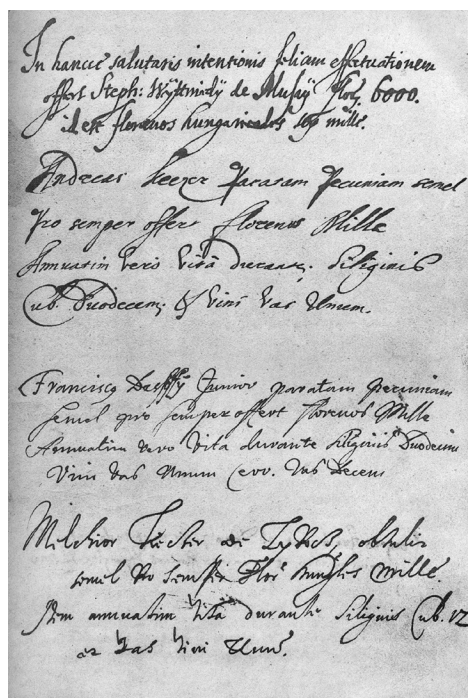 In hancce salutaris intentionis feliam effectuationem
offert Steph: Wÿttniedÿ de Musaÿ flor. 6000.
id est florenos hungaricales sex mille.
Andreas Keczer Paratam Pecuniam semel
Pro semper offert florenos Mille
Annuatim vero vita durante Siliginis
Cub. Duodecem, & vini vas Unum.
Francisc9 Junior paratam pecuniam
semel pro semper offert florenos Mille
Annuatim vero vita durante Siliginis Duodecim
Vini vas Unum Decem
Melchior de obtulit
semel pro semper Flor hungles mille.
Item annuatim vita durante Siliginis Cub. 12
et vas vini Unum.